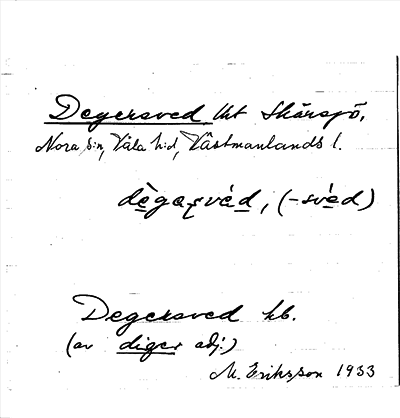 Degersved tht Skärsjö,
Nora sn, Våla hd, Västmanlands l.
dègaṣvád, (-svéd)
Degersved hb.
(av diger adj.)
M. Eriksson 1933